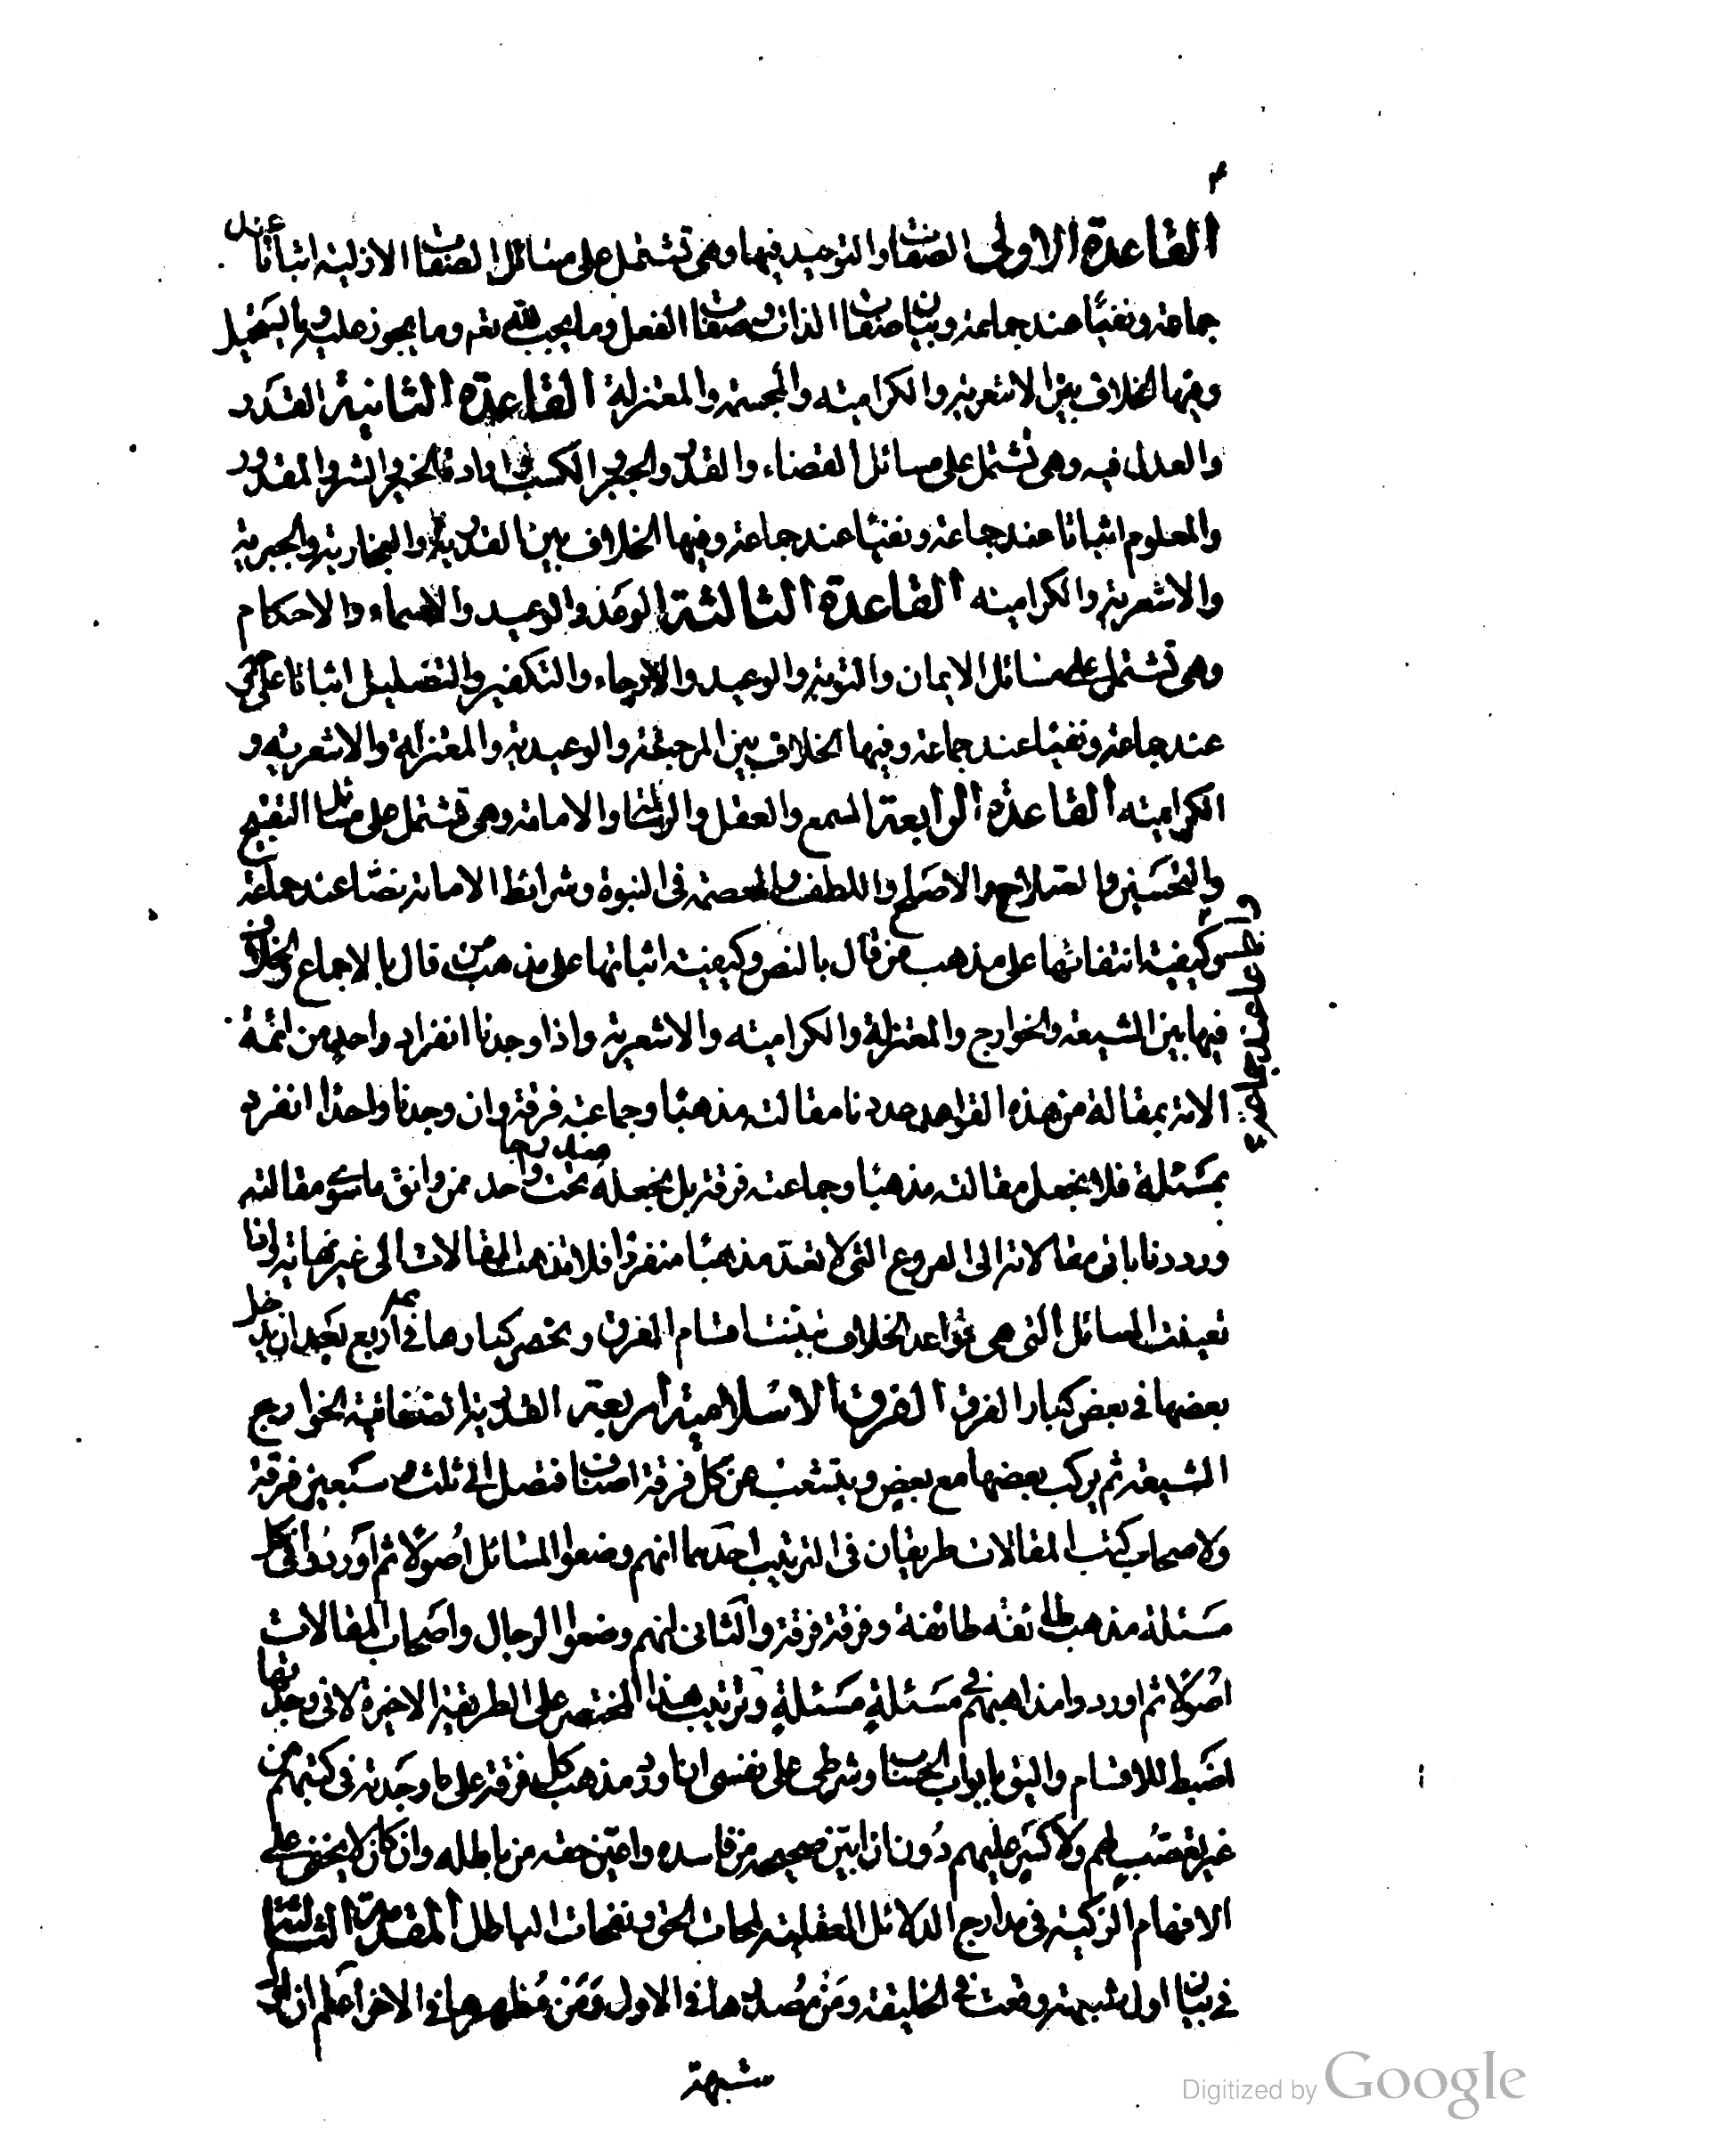 ٤
القاعدة الاولى الصفات والتوحيد فيها وهى تشتمل على مسائل الصفات الازلية اثباتا عند
جماعة ونفيا عند جماعة وبيان صفات الذات وصفات الفعل وما يجب لله تعه وما يجوز عليه وما يستحيل
وفيها الخلاف بين الاشعرية والكرامية والمجسمة والمعتزلة القاعدة الثانية القدر
والعدل فيه وهى تشتمل على مسائل القضاء والقدر والجبر والكسب وارادة الخير والشر والمقدور
والمعلوم اثباتا عند جماعة ونفيا عند جماعة وفيها الخلاف بين القدرية والنجارية والجبرية
والاشعرية والكرامية القاعدة الثالثة الوعد والوعيد والاسماء والاحكام
وهى تشتمل على مسائل الايمان والتوبة والوعيد والارجاء والتكفير والتضليل اثباتا على
عند جماعة ونفيا عند جماعة وفيها الخلاف بين المرجئة والوعيدية والمعتزلة والاشعرية و
الكرامية القاعدة الرابعة السمع والعقل والرسالة والامامة وهى تشتمل على مسائل التقبيح
والتحسين والصلاح والاصلح واللطف والعصمة فى النبوة وشرائط الامامة نصا عند جماعة
واجماعا عند جماعة
وكيفية انتقالها على مذهب من قال بالنص وكيفية اثباتها على مذهب من قال بالاجماع والخلاف
فيها بين الشيعة والخوارج والمعتزلة والكرامية والاشعرية واذا وجدنا انفراد واحد من ائمة
الامة بمقالة من هذه القواعد عددنا مقالته مذهبا وجماعته فرقة وان وجدنا واحدا انفرد
بمسئلة فلا نجعل مقالته مذهبا وجماعته فرقة بل نجعله تحت واحد ممن وافق ما سوى مقالته
ورددنا باقى مقالاته الى الفروع التى لا تعد مذهبا منفردا فلا تذهب المقالات الى غير نهاية واذا
تعينت المسائل التى هى قواعد الخلاف تبينت اقسام الفرق وتنحصر كبارها فى اربع بعد ان يدخل
بعضها فى بعض كبار الفرق الفرق الاسلامية اربعة القدرية الصفاتية الخوارج
الشيعة ثم يركب بعضها مع بعض ويتشعب عن كل فرقة اصناف فتصل الى ثلث وسبعين فرقة
ولاصحاب كتب المقالات طريقان فى الترتيب احدهما انهم وضعوا المسائل اصولا ثم اوردوا فى كل
مسئلة مذهب طائفة طائفة وفرقة فرقة والثانى انهم وضعوا الرجال واصحاب المقالات
اصولا ثم اوردوا مذاهبهم فى مسئلة مسئلة وترتيب هذا المختصر على الطريقة الاخيرة لانى وجدتها
اضبط للاقسام واليق بابواب الحساب وشرطى على نفسى ان اورد مذهب كل فرقة على ما وجدته فى كتبهم من
غير تعصب لهم ولا كسر عليهم دون ان ابين صحيحه من فاسده واعين حقه من باطله وان كان لا يخفى على
الافهام الزكية فى مدارج الدلائل العقلية لمحات الحق ونفحات الباطل المقدمة الثالثة
فى بيان اول شبهة وقعت فى الخليقة ومن مصدرها فى الاول ومن مظهرها فى الاخر اعلم ان اول
شبهة
Digitized by Google